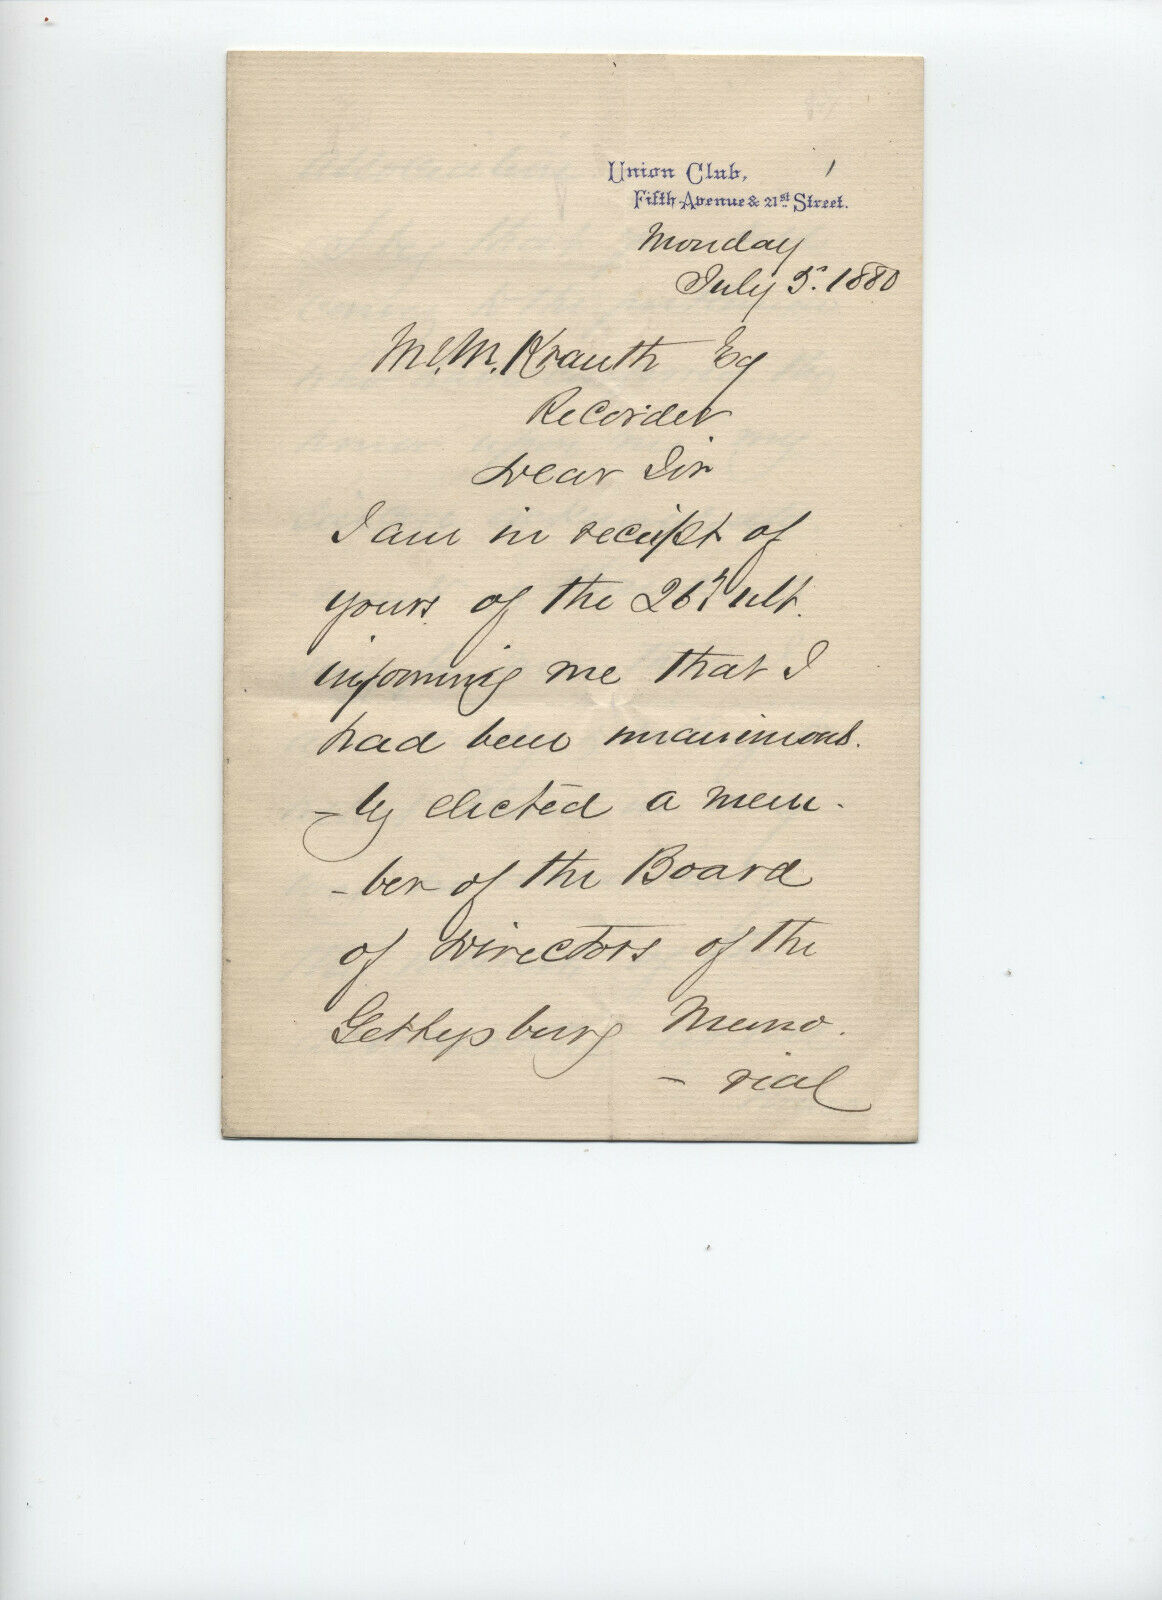 Union Club,
Fifth Avenue & 21st Street.
Monday
July 5. 1880
Krauth Eq
Recorder
Dear Sir
I am in receipt of
yours of the 26th ult.
informing me that I
had been unanimous.
-ly elected a mem-
-ber of the Board
of Directors of the
Gettysburg Memo.
- rial